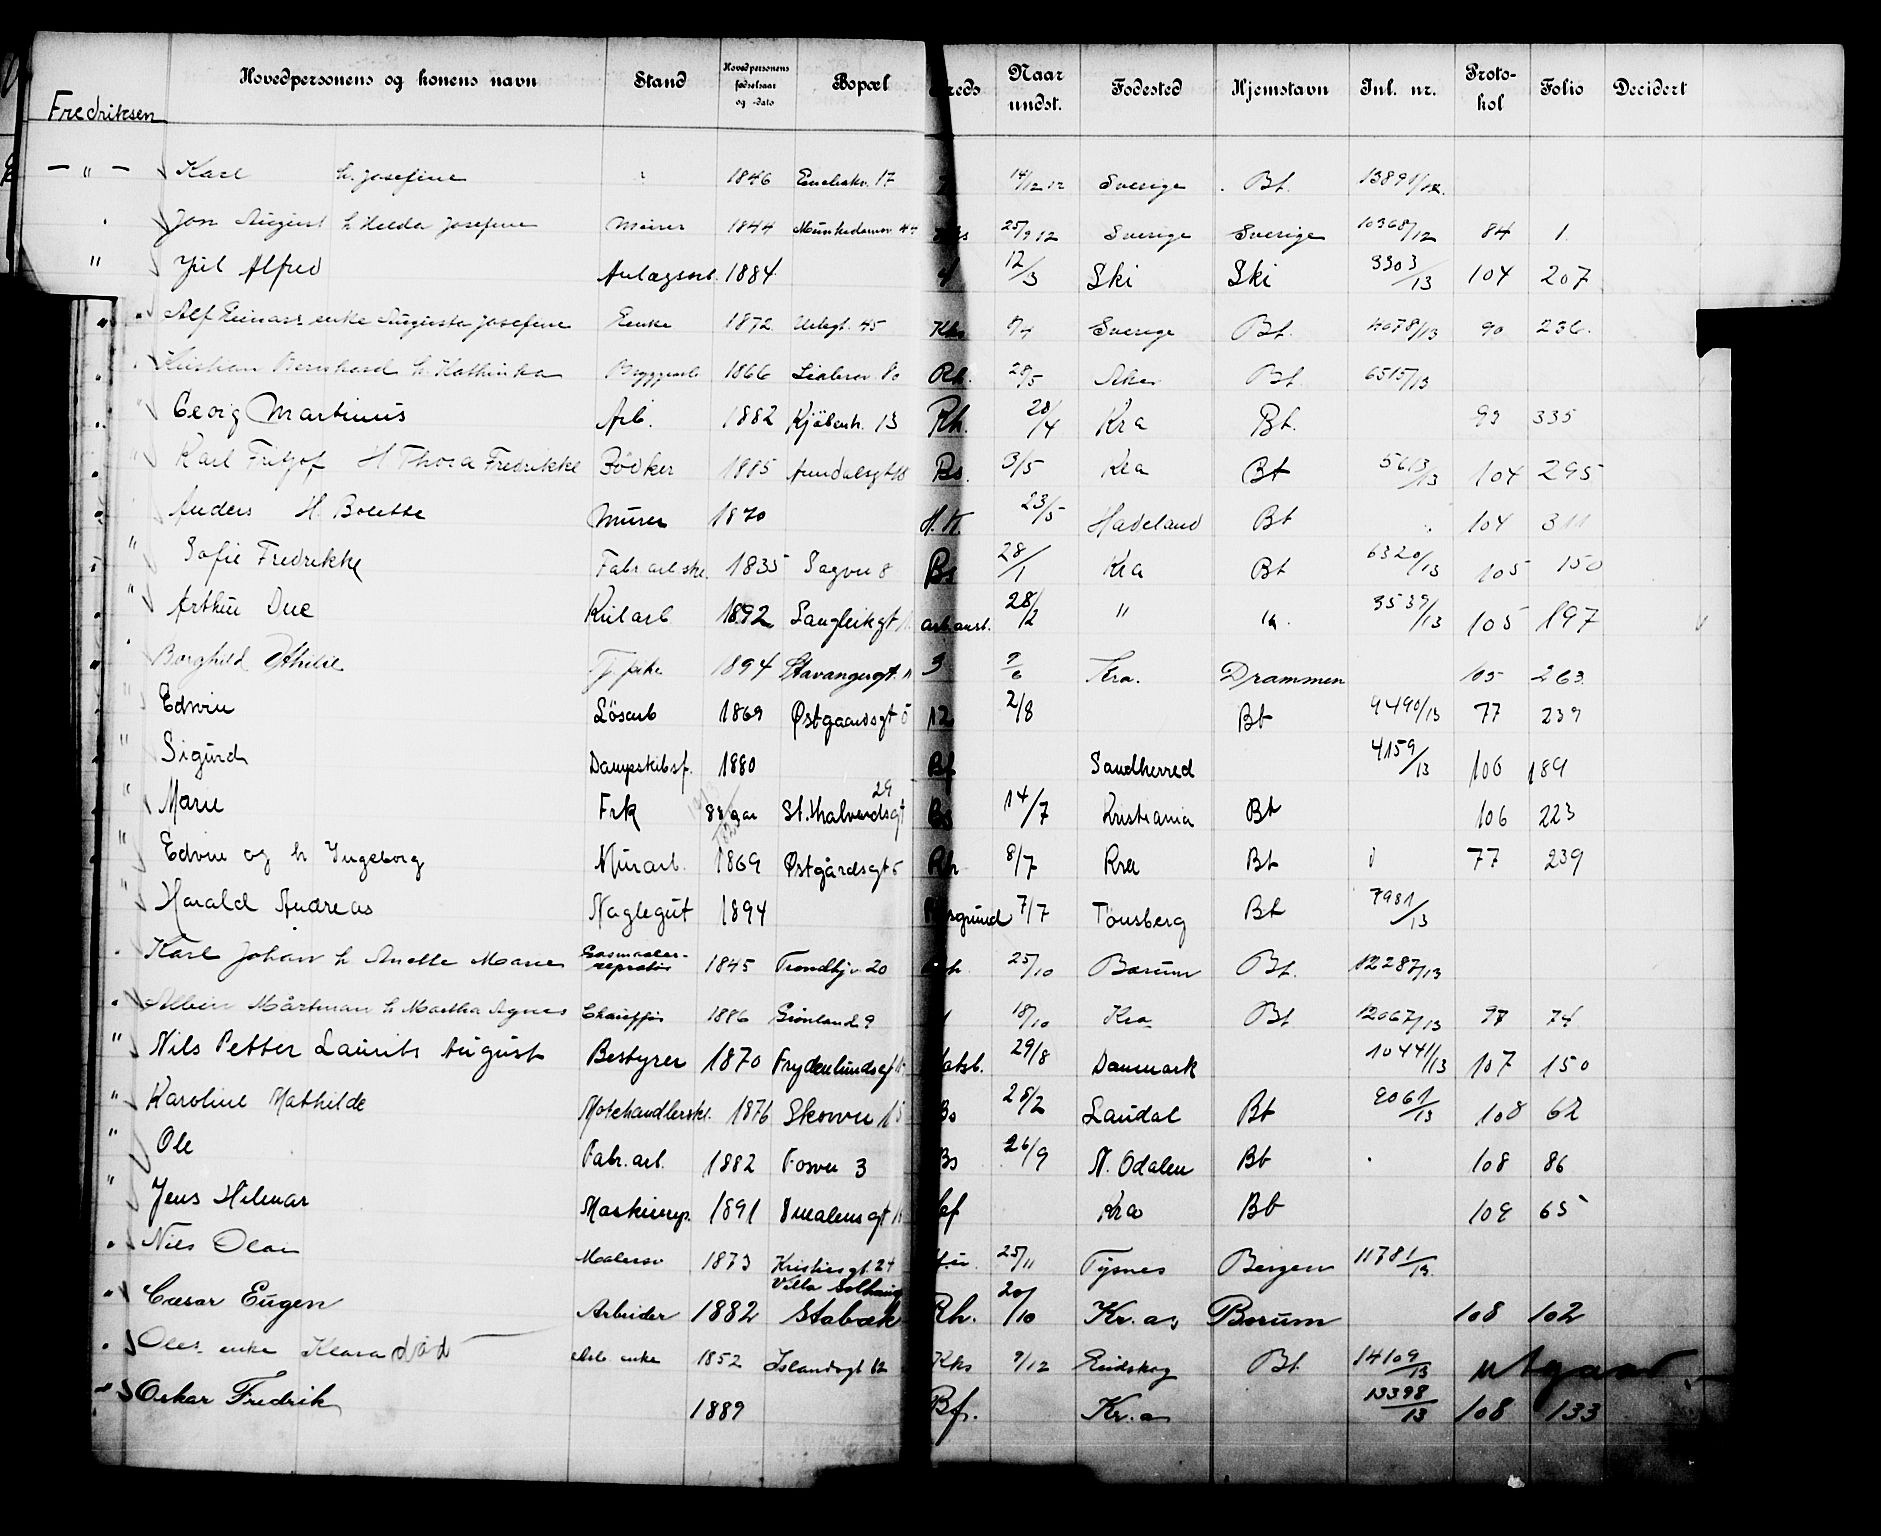 Hovedpersonens og konens navn Stand Hovedpersonens fødselsaar og -dato Bopæl Kreds Naar undst. Fødested Hjemstavn Jnl. nr. Protokol Folio Decidert
Fredriksen
— " — Karl h. Josefine 1846 17 14/12 12 Sverige Bt. 13891/12
Jon August h Hulda Josefine Murer 1844 Munkedamsv 25/9 12 Sverige Sverige 10368/12 84 1
" Juel Alfred Anlægsarb. 1884 4 12/3 Ski Ski 3303/13 104 207
" Alf Einars enke Augusta Josefine Enke 1872 Urtegt. 45 Kks 9/4 Sverige Bt. 4078/13 90 236
" Kristian Bernhard h. Kathinka Bryggearb 1866 Rh. 28/5 Aker Bt 6515/13
" Georg Martinus Arb. 1882 Kjøbenh. 13 Rh. 28/4 Kra Bt. 93 335
" Karl Fritjof H Thora Fredrikke Bødker 1885 Arendalsgt Bs. 3/5 Kra Bt 5613/13 104 295
" Anders H. Bolette Murer 1870 23/5 Hadeland Bt 104 311
" Sofie Fredrikke Fabr arbske. 1835 Sagvn 8 Bs 28/1 Kra Bt 6320/13 105 150
" Arthur Due Kularb 1892 Langleikgt arb.anst. 28/2 " " 3539/13 105 197
" Borghild Othilie Tj. pike 1894 Stavangergt. 3 9/6 Kra. Drammen 105 263
" Edwin Løsarb 1869 Østgaardsgt 5 12 2/8 Bt 9490/13 77 239
" Sigurd Dampskibsf. 1880 Bf Sandherred 4159/13 106 189
" Marie Frk 88 aar St. Halvardsgt 29 Bs 14/7 Kristiania Bt 106 223
" Edvin og h Ingeborg Murarb. 1869 Østgårdsgt 5 Rh 8/7 Kra Bt 77 239
" Harald Andreas Naglegut 1894 Porsgrund 7/7 Tønsberg Bt 7981/13
" Karl Johan h Anette Marie Gasmaalerreparatør 1845 Trondhjv. 20 Rh. 25/10 Bærum Bt. 12287/13
" Albin Mårtman h Martha Agnes Chauffør 1886 Grønland 9 18/10 Kra Bt 12067/13 97 74
" Nils Petter Laurits August Bestyrer 1870 Frydenlundsgt 29/8 Danmark 10441/13 107 150
" Karoline Mathilde Motehandlerske. 1876 Skovvn 15 Bs 25/2 Laudal Bt 9061/13 108 62
" Ole Fabr. arb. 1882 Fosvn 3 Bs 26/9 N. Odalen Bt 108 86
" Jens Hilmar Maskinrep. 1891 Smalensgt Bf Kra Bt 108 65
" Nils Olai Malersv 1873 Kristiesgt. 24 25/11 Tysnes Bergen 11781/13
" Cæsar Eugen Arbeider 1882 Villa Solhaug Stabæk Rh. 20/10 Kr.a Bærum 108 102
" Oles enke Klara død Arb. enke 1852 Islandsgt 12 Kks 9/12 Eidskog Bt 14109/13 utgaar
" Oskar Fredrik 1889 Bf. Kr.a 13398/13 108 133